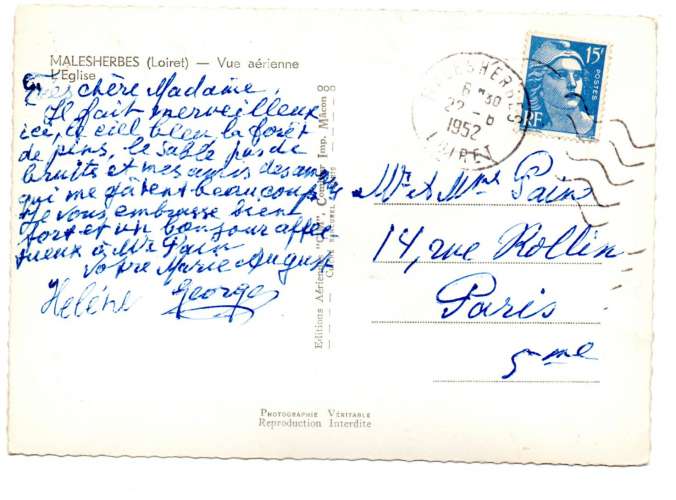 MALESHERBES (Loiret) — Vue aérienne
L'Eglise
Très chère Madame,
Il fait merveilleux
ici, le ciel bleu la forêt
de pins, le sable pas de
bruits et mes amis des amours
qui me gâtent beaucoup
Je vous embrasse bien
fort et un bonjour affec
tueux à Mr Pain
Votre Marie August
Hélène Georges
Editions Aériennes "CIM", Combier Imp. Mâcon
PHOTOGRAPHIE VÉRITABLE
Reproduction Interdite
15F
POSTES
RF
MALESHERBES
6 H30
22 - 6
1952
LOIRET
Mr et Mme Pain
14, rue Rollin
Paris
5me